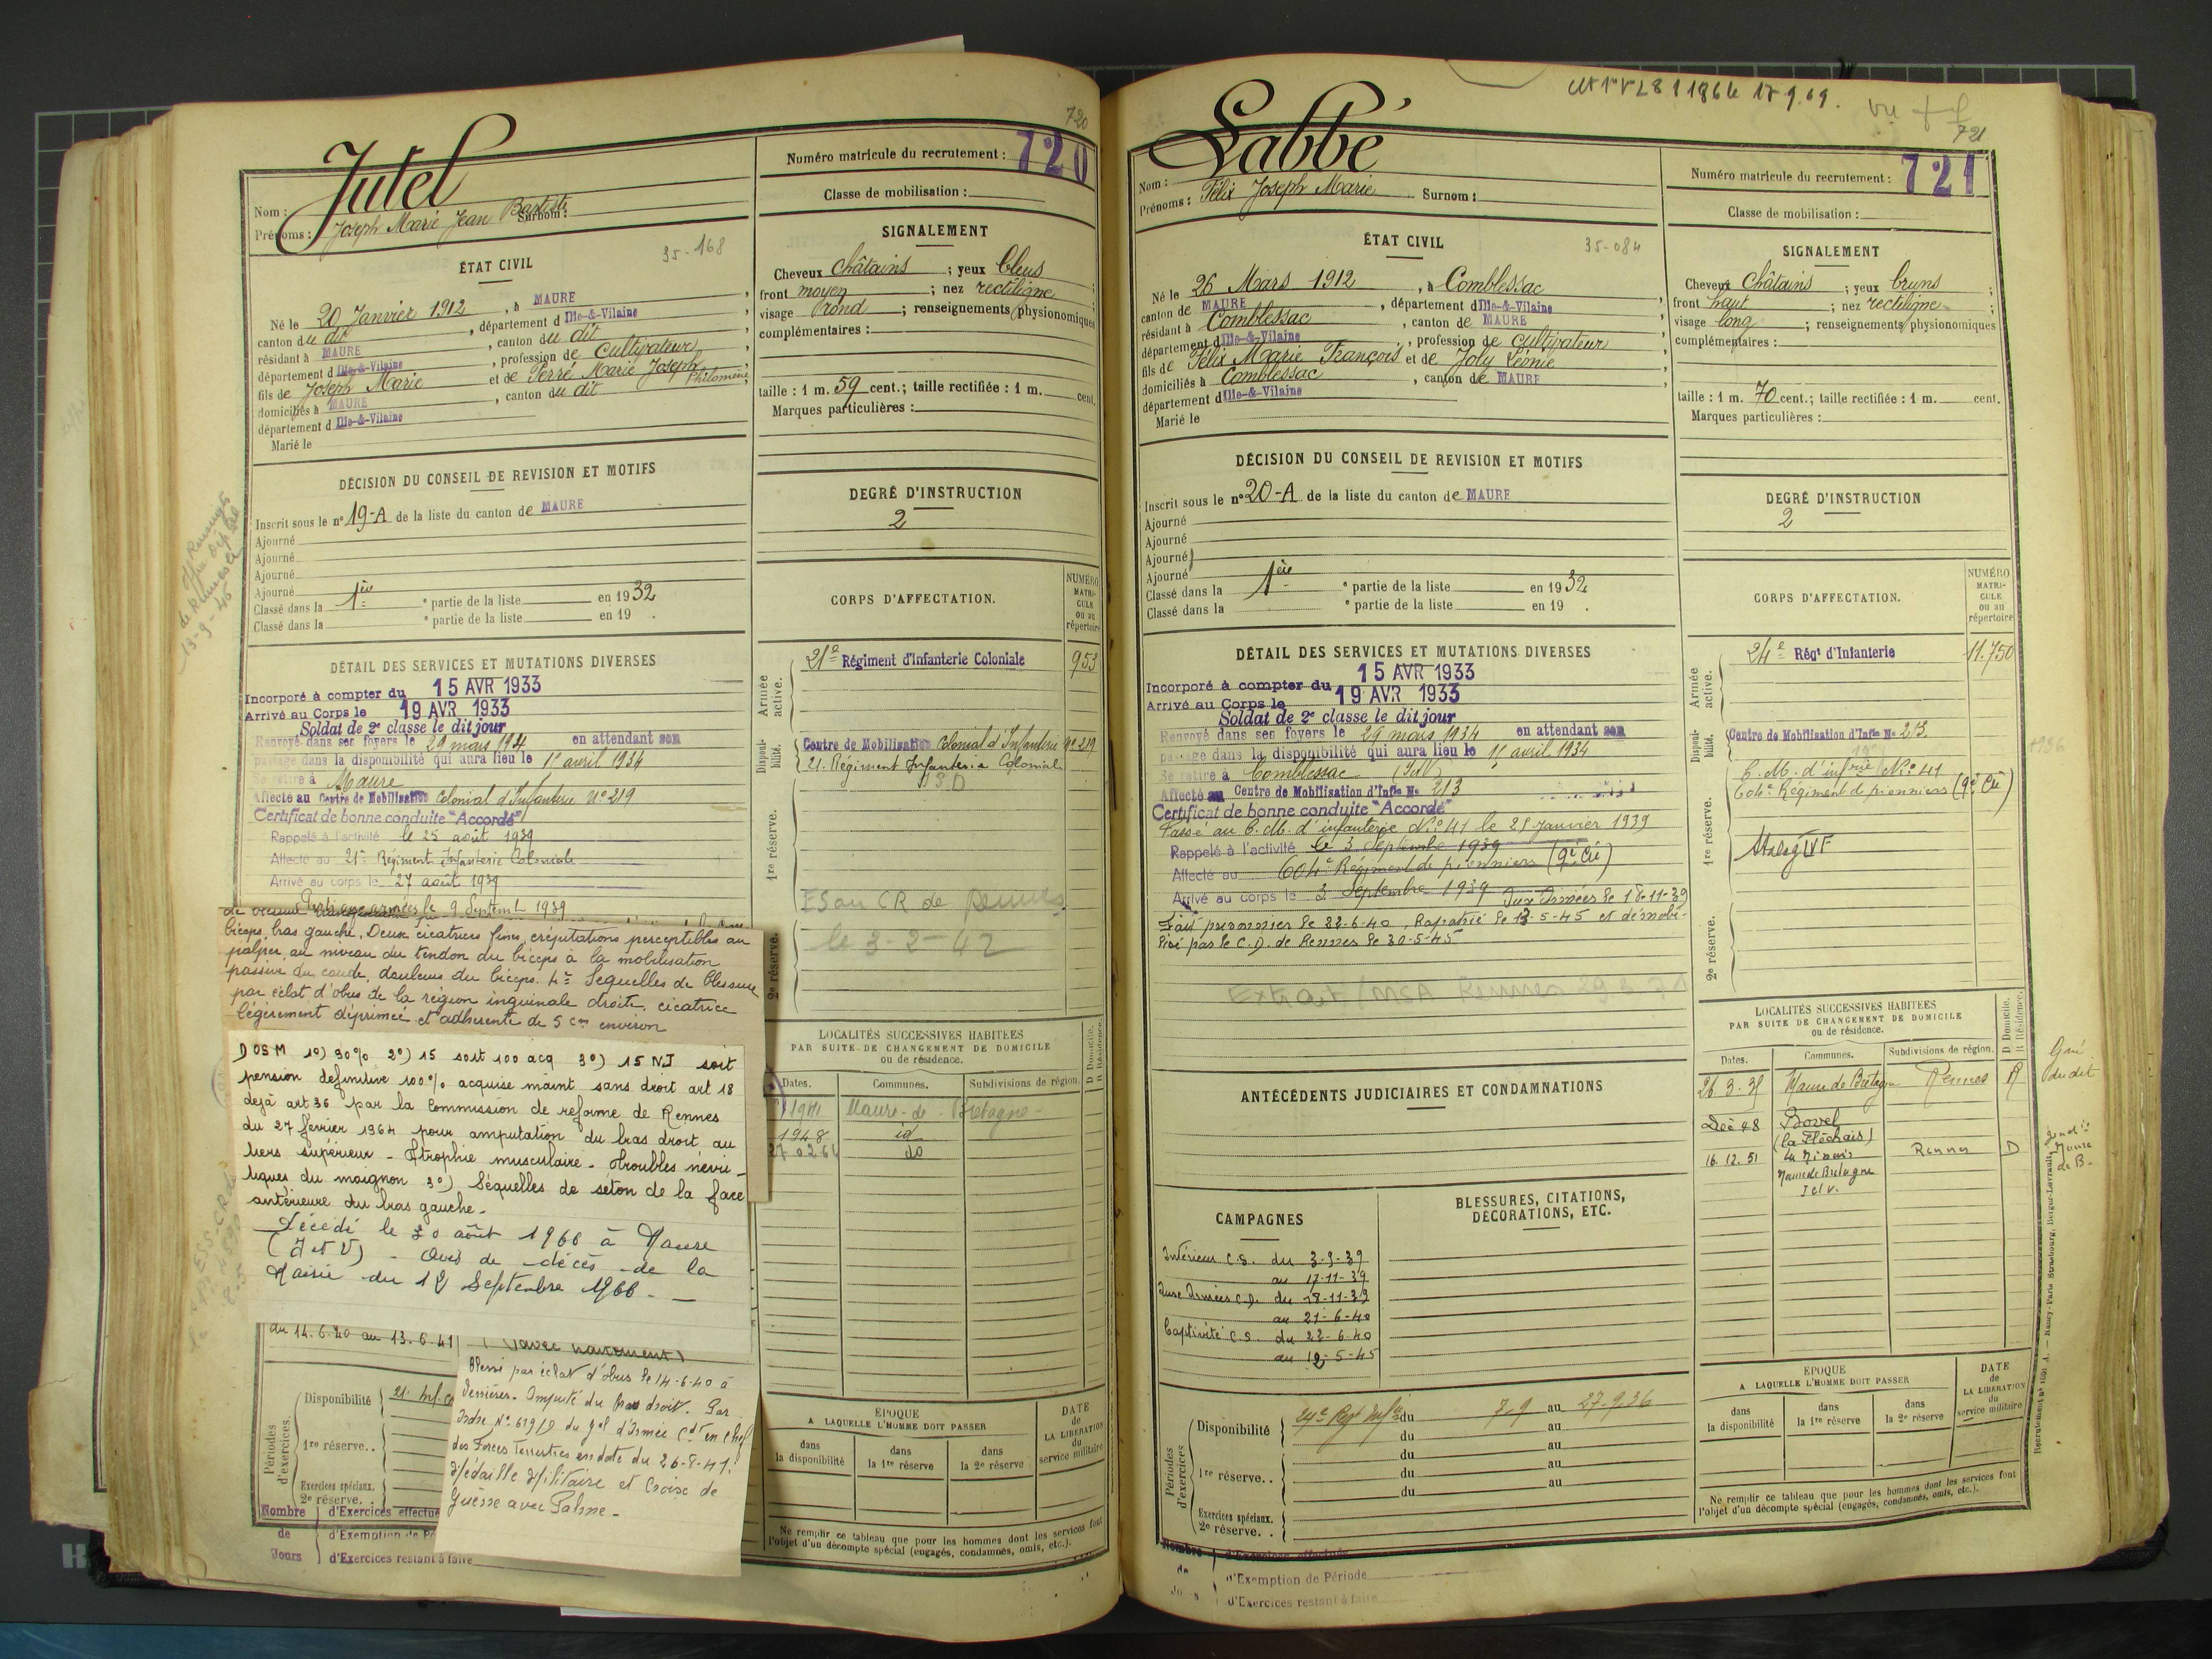 720
Jutel
Nom :
Prénoms : Joseph Marie Jean Baptiste Surnom :
Numéro matricule du recrutement : 720
Classe de mobilisation :
ÉTAT CIVIL
35-168
Né le 20 Janvier 1912, à MAURE
canton du dit, département d Ille-&-Vilaine
résidant à MAURE, canton du dit
département d Ille-&-Vilaine, profession de Cultivateur
fils de Joseph Marie et de Perré Marie Joseph Philomène
domiciliés à MAURE, canton du dit
département d Ille-&-Vilaine
Marié le
SIGNALEMENT
Cheveux châtains ; yeux bleus
front moyen ; nez rectiligne
visage rond ; renseignements physionomiques
complémentaires :
taille : 1 m. 59 cent.; taille rectifiée : 1 m. cent.
Marques particulières :
DÉCISION DU CONSEIL DE REVISION ET MOTIFS
Inscrit sous le nº 19-A de la liste du canton de MAURE
Ajourné
Ajourné
Ajourné
Ajourné
Classé dans la 1ère partie de la liste en 1932
Classé dans la e partie de la liste en 19 .
DEGRÉ D'INSTRUCTION
2
CORPS D'AFFECTATION.
NUMÉRO MATRICULE ou au répertoire
Armée active.
21e Régiment d'Infanterie Coloniale 953
Disponibilité.
Centre de Mobilisation Colonial d'Infanterie nº 219
21. Régiment Infanterie Coloniale
1re réserve.
ES au CR de Rennes
le 3-2-42
2e réserve.
DÉTAIL DES SERVICES ET MUTATIONS DIVERSES
Incorporé à compter du 15 AVR 1933
Arrivé au Corps le 19 AVR 1933
Soldat de 2e classe le dit jour
Renvoyé dans ses foyers le 29 mars 1934 en attendant son
passage dans la disponibilité qui aura lieu le 1er avril 1934
Se retire à Maure
Affecté au Centre de Mobilisation Colonial d'Infanterie nº 219
Certificat de bonne conduite "Accordé"
Rappelé à l'activité le 25 août 1939
Affecté au 21e Régiment Infanterie Coloniale
Arrivé au corps le 27 août 1939
Parti aux armées le 9 Septemb 1939
biceps bras gauche. Deux cicatrices fines, crépitations perceptibles au
palper, au niveau du tendon du biceps à la mobilisation
passive du coude, douleurs du biceps. 4e Séquelles de blessure
par éclat d'obus de la région inguinale droite, cicatrice
légèrement déprimée et adhérente de 5 cm environ
DOSM 1º) 90% 2º) 15 soit 100 acq 3º) 15 NI soit
pension définitive 100% acquise maint sans droit art 18
déjà art 36 par la Commission de réforme de Rennes
du 27 février 1964 pour amputation du bras droit au
tiers supérieur - Atrophie musculaire - troubles névri-
tiques du moignon 3º) Séquelles de séton de la face
antérieure du bras gauche.
Décédé le 30 août 1966 à Maure
(I et V) - Avis de décès de la
Mairie du 12 Septembre 1966.
du 14.6.40 au 13.6.41
Blessé par éclat d'obus le 14-6-40 à
Amputé du bras droit. Par
ordre Nº 619/D du gal d'Armée Cdt en Chef
des Forces Terrestres en date du 26-8-41.
Médaille Militaire et Croix de
Guerre avec Palme.
LOCALITÉS SUCCESSIVES HABITÉES
PAR SUITE DE CHANGEMENT DE DOMICILE
ou de résidence.
D Domicile. R Résidence.
Dates. Communes. Subdivisions de région.
1941 Maure-de-Bretagne
1948 id
27 02 64 do
Périodes d'exercices.
Disponibilité
1re réserve..
Exercices spéciaux.
2e réserve. .
Nombre de Jours
d'Exercices effectué
d'Exemption de Pé
d'Exercices restant à faire
ÉPOQUE
A LAQUELLE L'HOMME DOIT PASSER
dans la disponibilité
dans la 1re réserve
dans la 2e réserve
DATE de LA LIBÉRATION du service militaire
Ne remplir ce tableau que pour les hommes dont les services font
l'objet d'un décompte spécial (engagés, condamnés, omis, etc.).
721
Labbé
Nom :
Prénoms : Félix Joseph Marie Surnom :
Numéro matricule du recrutement : 721
Classe de mobilisation :
ÉTAT CIVIL
35-084
Né le 26 Mars 1912, à Comblessac
canton de MAURE, département d Ille-&-Vilaine
résidant à Comblessac, canton de MAURE
département d Ille-&-Vilaine, profession de cultivateur
fils de Félix Marie François et de Joly Léonie
domiciliés à Comblessac, canton de MAURE
département d Ille-&-Vilaine
Marié le
SIGNALEMENT
Cheveux châtains ; yeux bruns
front haut ; nez rectiligne
visage long ; renseignements physionomiques
complémentaires :
taille : 1 m. 70 cent.; taille rectifiée : 1 m. cent.
Marques particulières :
DÉCISION DU CONSEIL DE REVISION ET MOTIFS
Inscrit sous le nº 20-A de la liste du canton de MAURE
Ajourné
Ajourné
Ajourné
Ajourné
Classé dans la 1ère partie de la liste en 1932
Classé dans la e partie de la liste en 19 .
DEGRÉ D'INSTRUCTION
2
CORPS D'AFFECTATION.
NUMÉRO MATRICULE ou au répertoire
Armée active.
24e Régt d'Infanterie 11.750
Disponibilité.
Centre de Mobilisation d'Infie Nº 213
1re réserve.
C.M. d'infrie Nº 41
604e Régiment de pionniers (9e Cie)
Stalag IV F
2e réserve.
DÉTAIL DES SERVICES ET MUTATIONS DIVERSES
Incorporé à compter du 15 AVR 1933
Arrivé au Corps le 19 AVR 1933
Soldat de 2e classe le dit jour
Renvoyé dans ses foyers le 29 mars 1934 en attendant son
passage dans la disponibilité qui aura lieu le 1er avril 1934
Se retire à Comblessac (IetV)
Affecté au Centre de Mobilisation d'Infie Nº 213
Certificat de bonne conduite "Accordé"
Passé au C.M. d'infanterie Nº 41 le 25 Janvier 1939
Rappelé à l'activité le 3 Septembre 1939
Affecté au 604e Régiment de pionniers (9e Cie)
Arrivé au corps le 3 Septembre 1939 Aux Armées le 18-11-39
Fait prisonnier le 22-6-40, Rapatrié le 13-5-45 et démobi-
lisé par le C.D. de Rennes le 30-5-45
ANTÉCÉDENTS JUDICIAIRES ET CONDAMNATIONS
LOCALITÉS SUCCESSIVES HABITÉES
PAR SUITE DE CHANGEMENT DE DOMICILE
ou de résidence.
D Domicile. R Résidence.
Dates. Communes. Subdivisions de région.
26.3.35 Maure de Bretagne Rennes R
Déc 48 Bovel
(la Fléchais)
16.12.51 Maure de Bretagne I et V. Rennes D
CAMPAGNES
Intérieur C.S. du 3-9-39
au 17-11-39
Aux Armées C.D. du 18-11-39
au 21-6-40
Captivité C.S. du 22-6-40
au 12-5-45
BLESSURES, CITATIONS,
DÉCORATIONS, ETC.
Périodes d'exercices
Disponibilité 24e Regt Infie du 7-9 au 27.9.36
du au
1re réserve.. du au
du au
du au
Exercices spéciaux.
2e réserve. .
Nombre de Jours
d'Exercices effectués
d'Exemption de Période
d'Exercices restant à faire
ÉPOQUE
A LAQUELLE L'HOMME DOIT PASSER
dans la disponibilité
dans la 1re réserve
dans la 2e réserve
DATE de LA LIBÉRATION du service militaire
Ne remplir ce tableau que pour les hommes dont les services font
l'objet d'un décompte spécial (engagés, condamnés, omis, etc.).